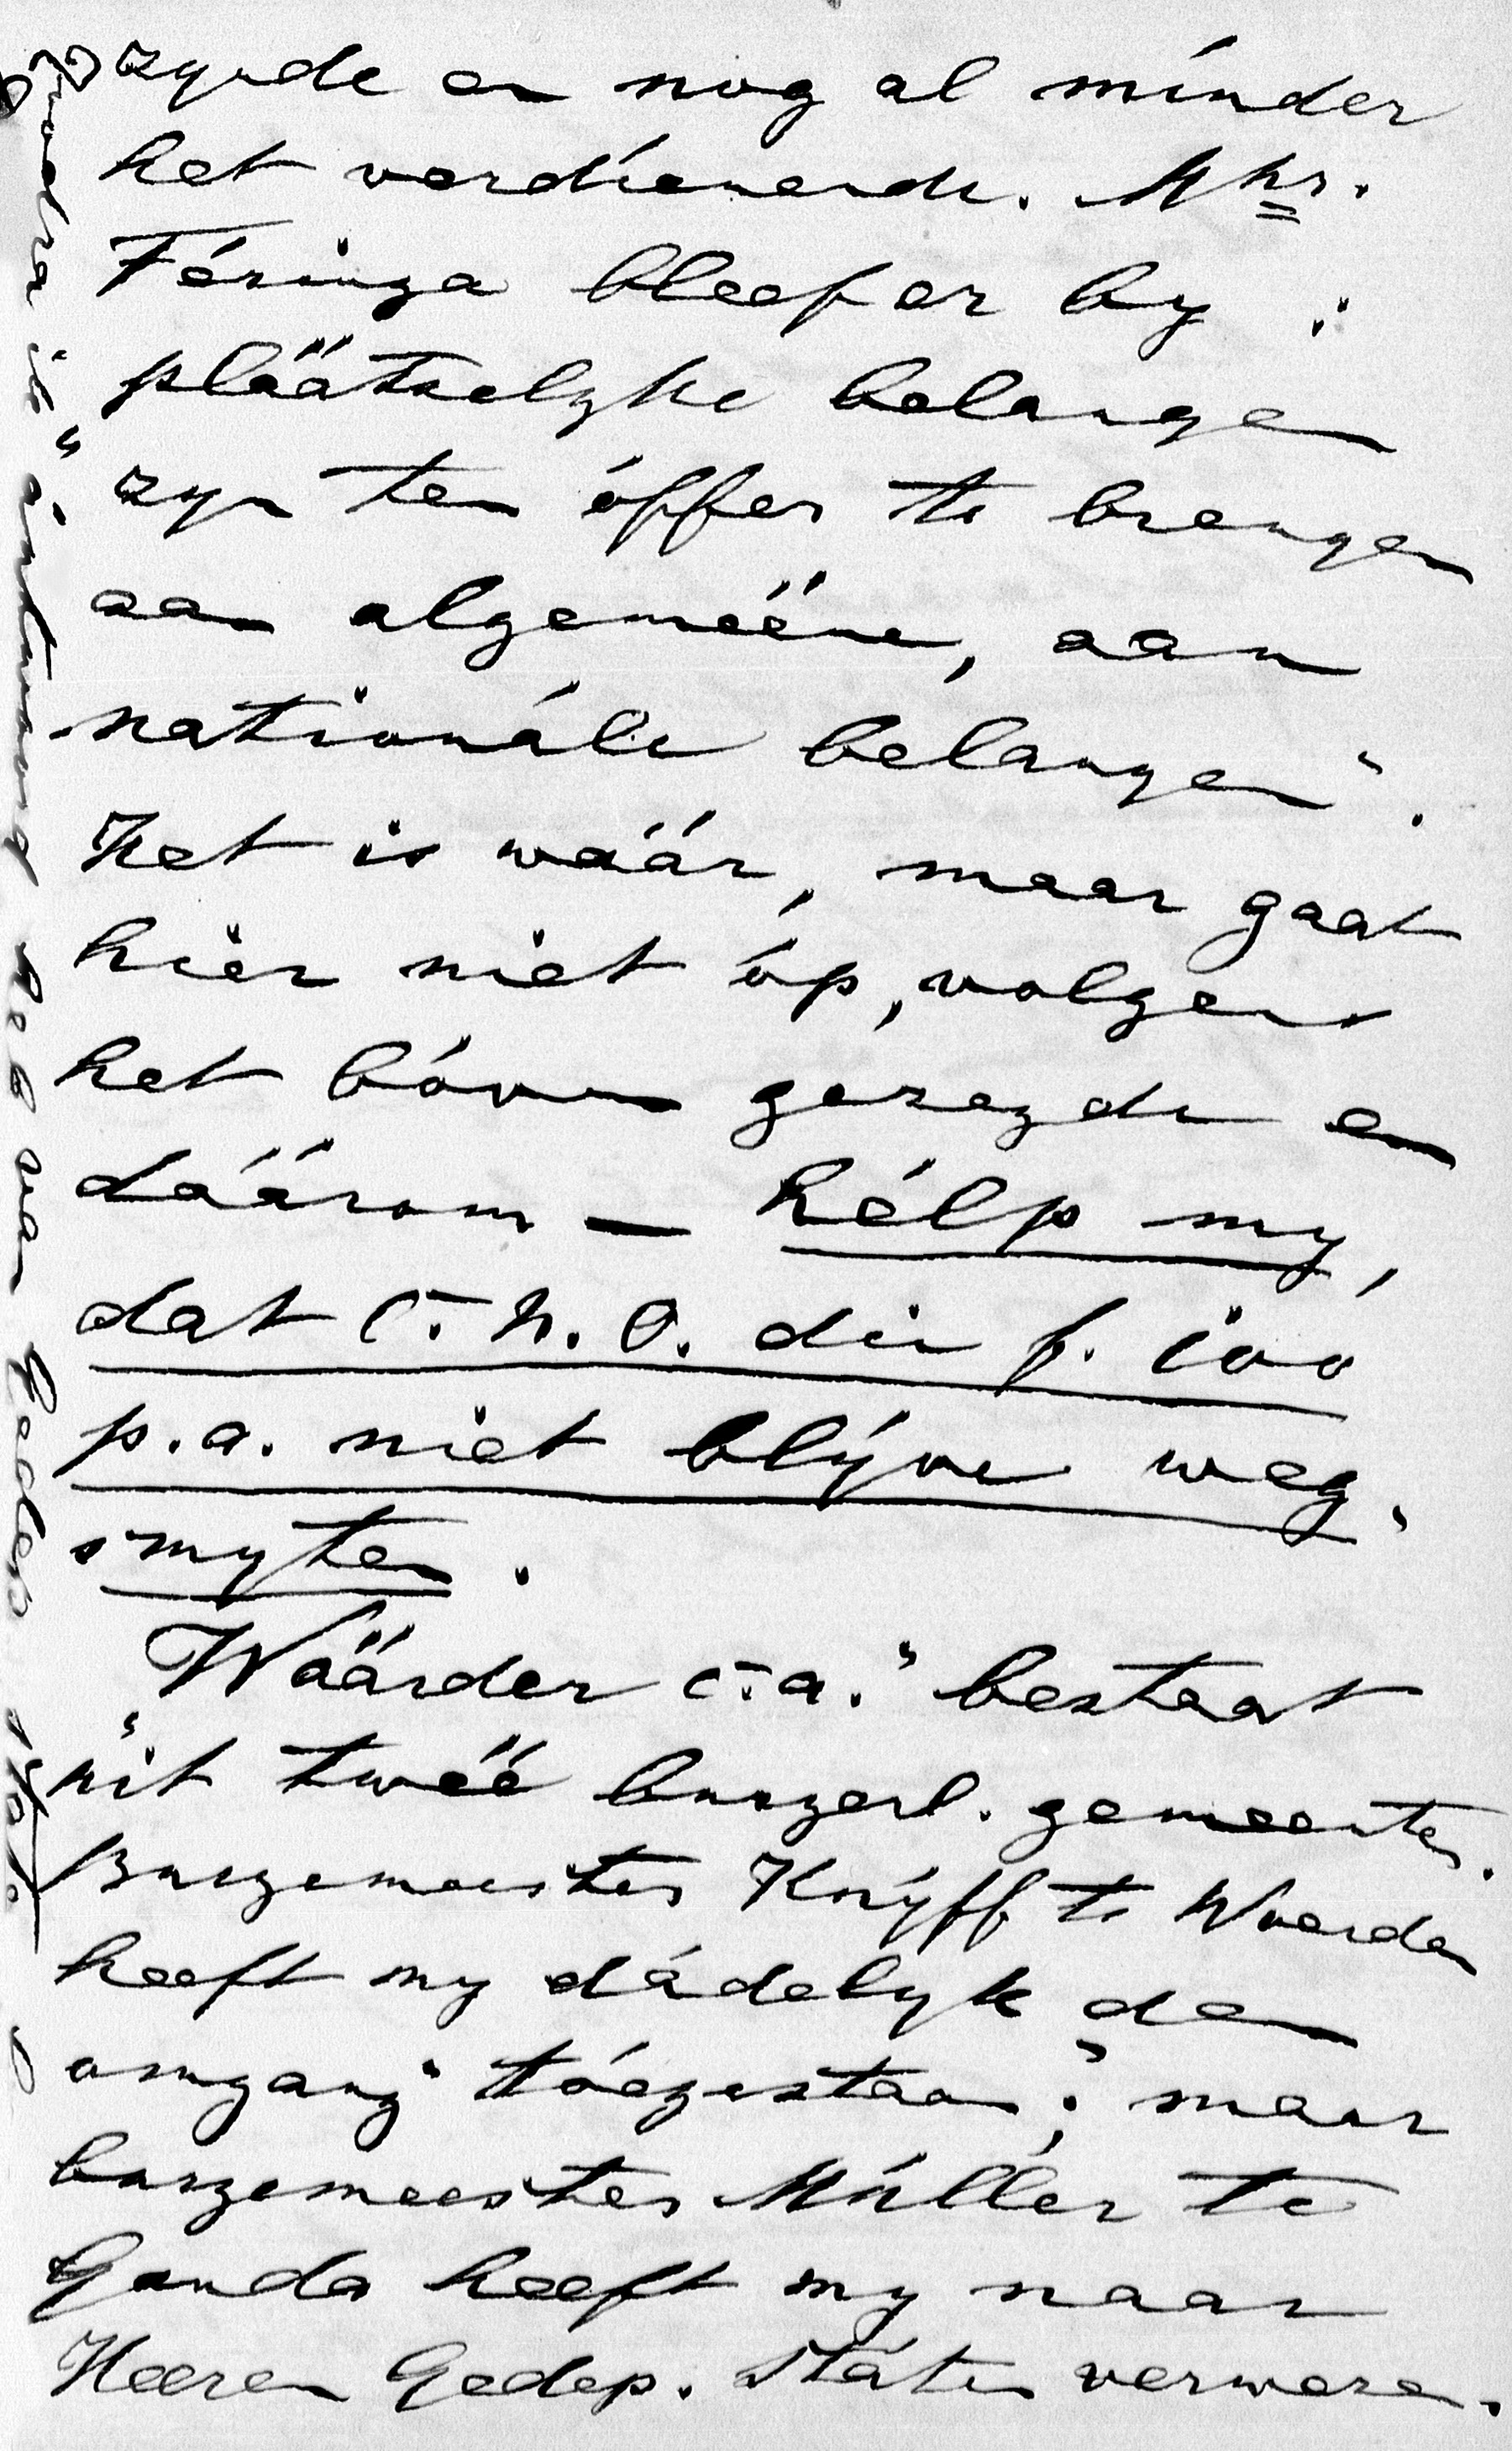 zynde en nog al minder
het verdienende. Mhr.
Féringa bleef er by :
"pláátselyke belangen
zyn ten óffer te brengen
aan algeméene, aan
nationále belangen".
Het is wáár, maar gaat
hier niet óp, volgens
het bóven gezegde en
dáárom — hélp my,
dat C.N.O. die f. 100
p.a. niet blýve weg-
smyten.
"Wáárder c.a." bestaat
uit twéé burgerl. gemeenten.
Burgemeester Knýff te Woerden
heeft my dádelyk den
"omgang" tóegestaan; maar
burgemeester Múller te
Gouda heeft my naar
Heeren Gedep. Státen verwezen.
is antwoord heb